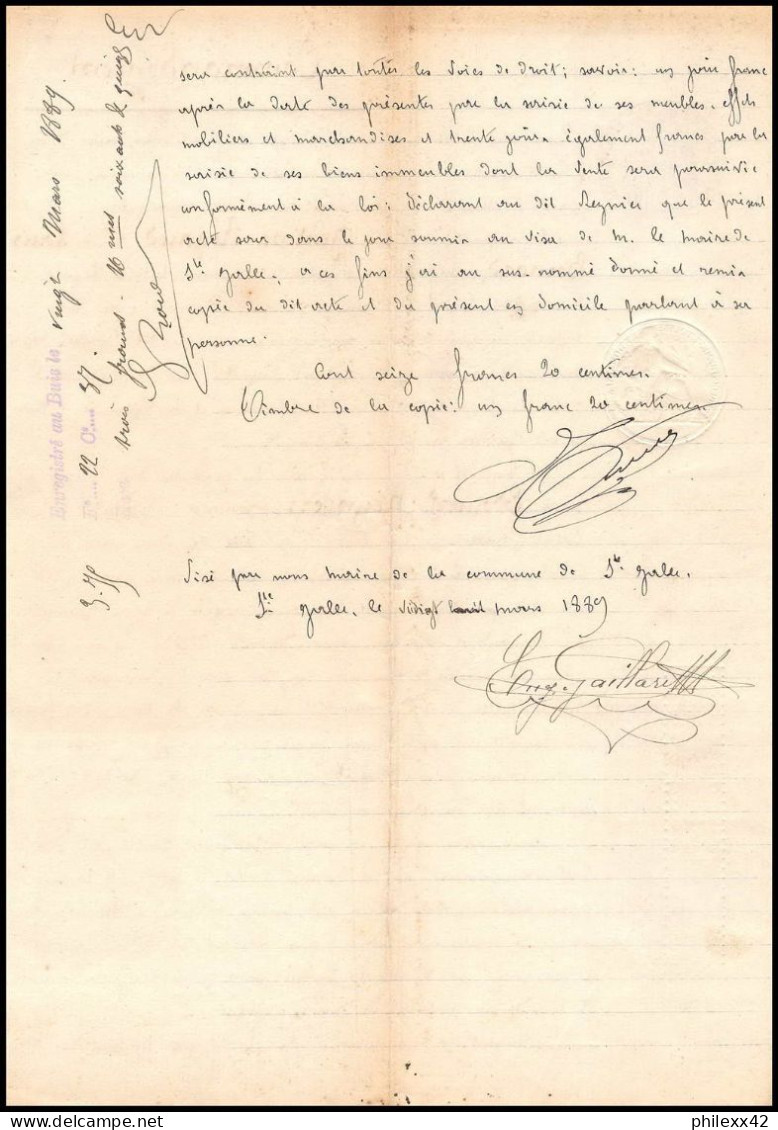 sera contraint par toutes les voies de droit; savoir: un jour franc
après la date des présentes par la saisie de ses meubles, effets
mobiliers et marchandises et trente jours également francs par la
saisie de ses biens immeubles dont la vente sera poursuivie
conformément à la loi; déclarant au dit Reynier que le présent
acte sera dans le jour soumis au visa de M. le maire de
Ste Jalle, a ces fins j'ai au sus-nommé donné et remis
copie du dit acte et du présent en domicile parlant à sa
personne.
Cout seize francs 20 centimes.
Timbre de la copie: un franc 20 centimes
Visé par nous maire de la commune de Ste Jalle.
Ste Jalle, le mars 1889
Eug. Gaillard
Enregistré au Buis le, vingt Mars 1889.
F° 22 C. 37.
trois francs soixante & quinze
3.75
philexx42